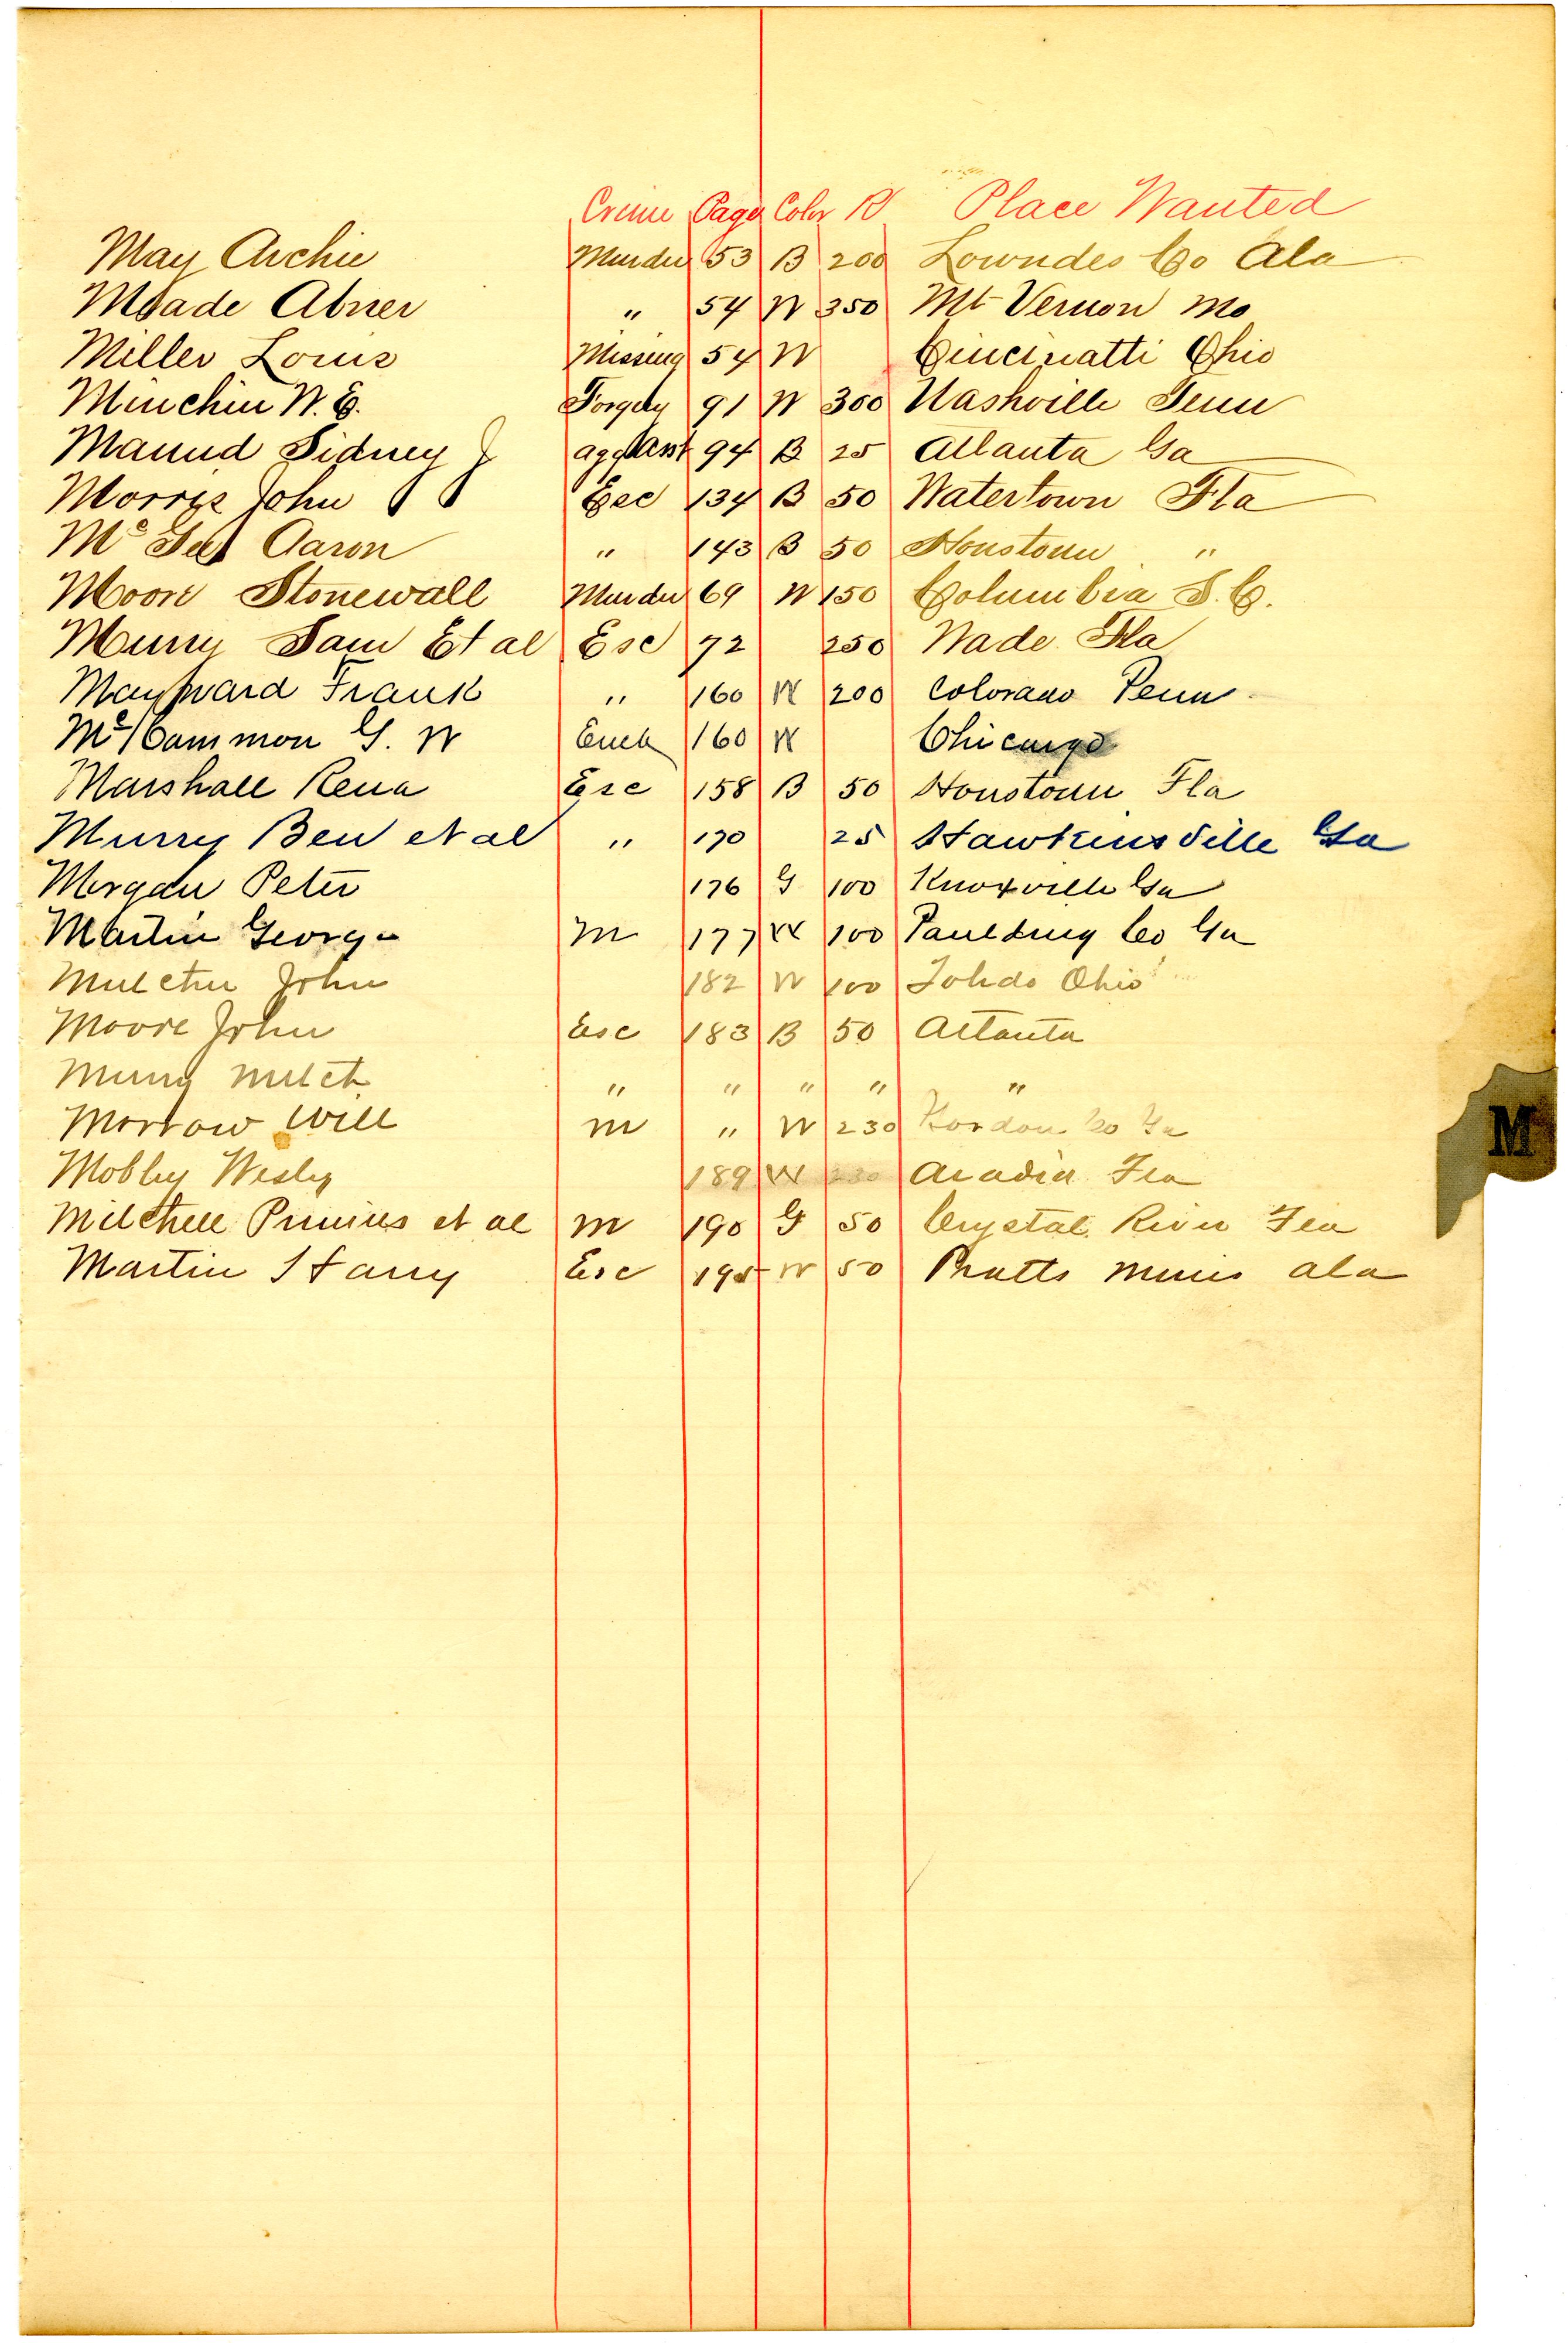 Crime Page Color R Place Wanted
May Archie Murder 53 B 200 Lowndes Co Ala
Meade Abner " 54 W 350 Mt Vernon Mo
Miller Louis Missing 54 W Cincinatti Ohio
Minchin W. E. Forgery 91 W 300 Nashville Tenn
Maund Sidney J 94 B 25 Atlanta Ga
Morris John Esc 134 B 50 Watertown Fla
Mc Aaron " 143 B 50 Houstoun "
Moore Stonewall Murder 69 W 150 Columbia S. C.
Murry Sam Et al Esc 72 250 Wade Fla
Maynard Frank " 160 W 200 Colorado Penn
Mc Cammon G. W 160 W Chicargo
Marshall Rena Esc 158 B 50 Houstoun Fla
Murry Ben et al " 170 25 Hawkinsville Ga
Morgan Peter 176 G 100 Knoxville Ga
Martin George M 177 W 100 Paulding Co Ga
John 182 W 100 Toledo Ohio
Moore John Esc 183 B 50 Atlanta
Murry Mitch " " " " "
Morrow Will M " W 230 Gordon Co Ga
Mobley Wesley 189 W Arcadia Fla
Mitchell et al M 190 G 50 Crystal River Fla
Martin Harry Esc 195 W 50 Pratts Mines Ala
M